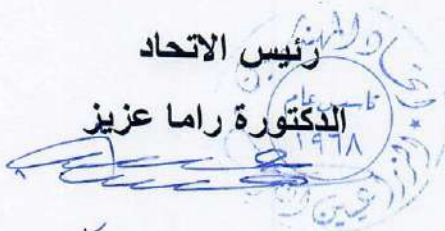 رئيس الاتحاد
الدكتورة راما عزيز
تأسس عام
١٩٦٨